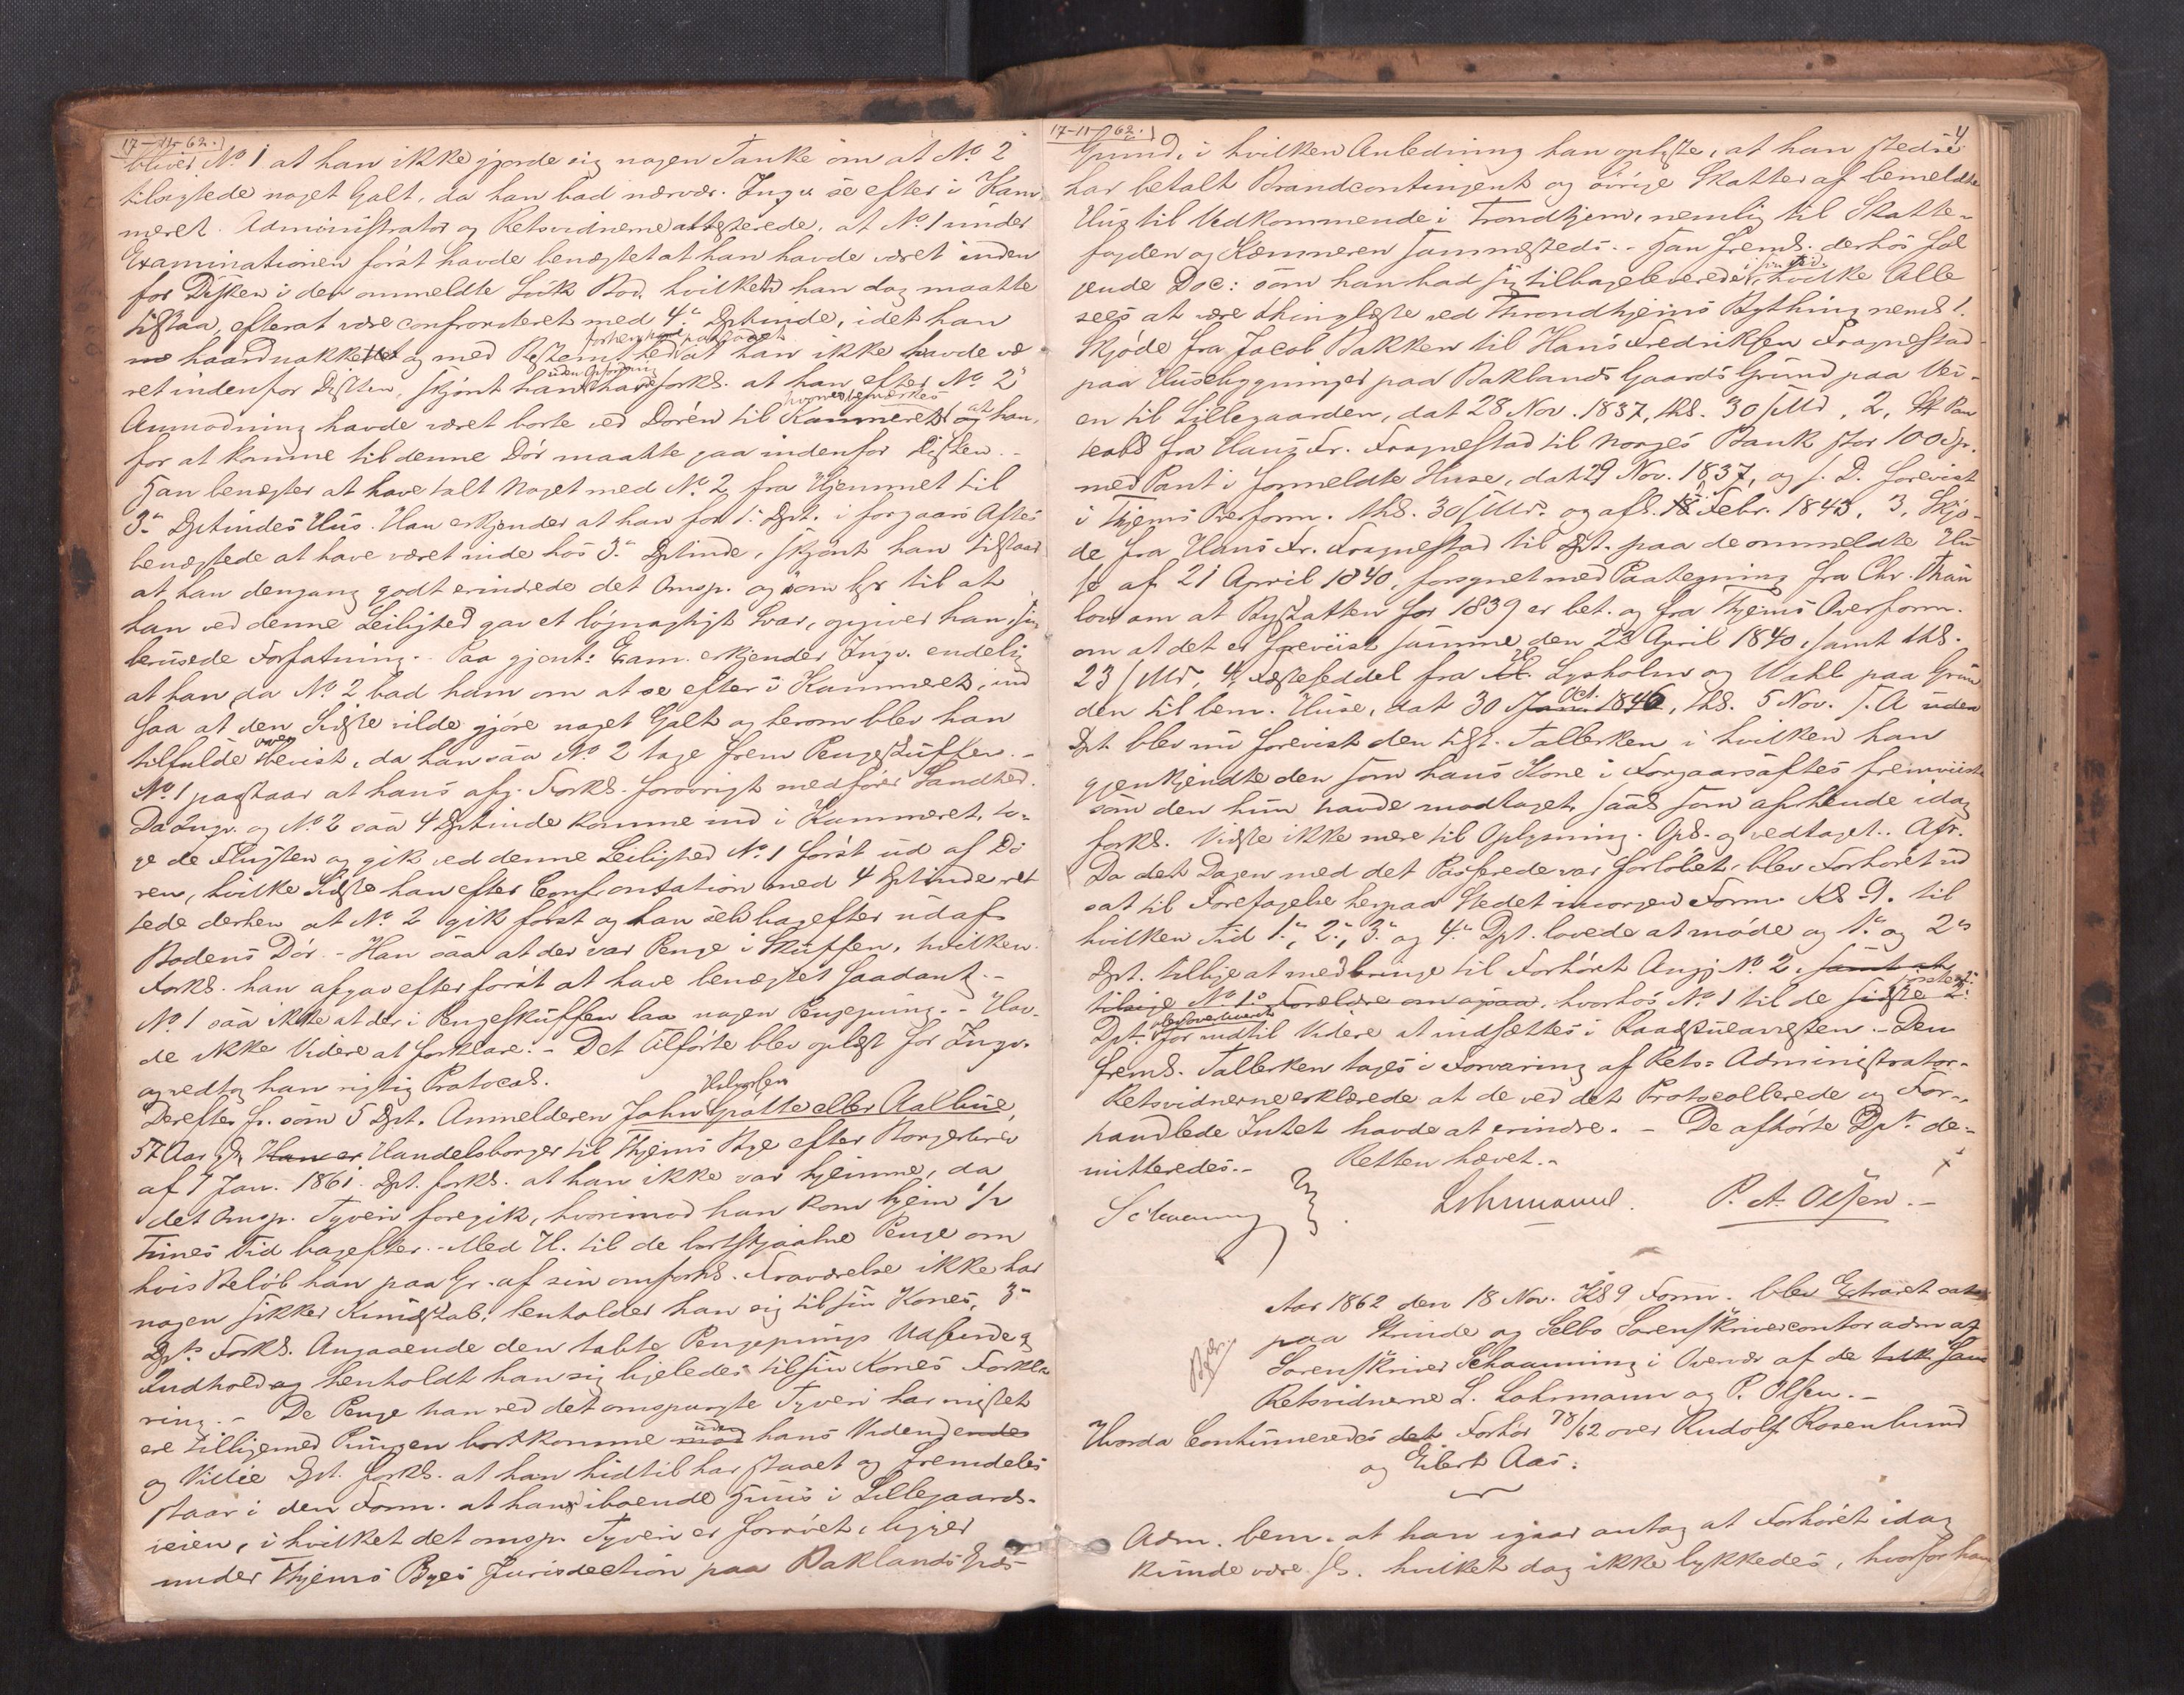 17-11-62.
bliver No 1 at han ikke gjorde sig nogen Tanke om at No 2
tilsigtede noget Galt, da han bad nærvær. Inqv. se efter i Kam-
meret. Administrator og Retsvidnerne attesterede, at No 1 under
Examinationen først havde benegtet at han havde været inden
for Disken i den ommeldte Bod, hvilket han dog maatte
tilstaa, efterat være confronteret med 4de Dptinde, idet han
haardnakket og med Bestemthed forhen paastod at han ikke havde væ
ret indenfor Disken, skjønt han uden Opfordring havde forkl. at han efter No 2s
Anmodning havde været borte ved Døren til Kammeret hvorved bemærkes at han,
for at komme til denne Dør maatte gaa indenfor Disken.-
Han benegter at have talt Noget med No 2 fra Hjemmet til
3de Dptindes Hus. Han erkjender at han for 1ste Dpt. i forgaars Aftes
benegtede at have været inde hos 3de Dptinde, skjønt han tilstaar
at han dengang godt erindrede det Omsp. og som til at
han ved denne Leilighed gav et løgnagtigt Svar, opgiver han sin
berusede Forfatning.- Paa gjent: Exam. erkjender Inqv. endelig
at han, da No 2 bad ham om at se efter i Kammeret, ind
saa at den Sidste vilde gjøre noget Galt og herom blev han
tilfulde overbevist, da han saa No 2 tage frem Pengeskuffen.-
No 1 paastaar at hans afg. Forkl. forøvrigt medfører Sandhed.
Da Inqv. og No 2 saa 4 Dptinde komme ind i Kammeret, to-
ge de Flugten og gik ved denne Leilighed No 1 først ud af Dø
ren, hvilke Sidste han efter Confrontation med 4 Dptinde ret
tede derhen at No 2 gik først og han selv bagefter ud af
Bodens Dør.- Han saa at der var Penge i Skuffen, hvilken
Forkl. han afgav efter først at have benegtet Saadant.-
No 1 saa ikke at der i Pengeskuffen laa nogen Pengepung.- Hav-
de ikke Videre at forklare.- Det Tilførte blev oplæst for Inqv.
og vedtog han rigtig Protocol.
Derefter fr. som 5 Dpt. Anmelderen John Halvorsen Grøtte eller Aalbue,
57 Aar gl. Han er Handelsborger til Thjems Bye efter Borgerbrev
af 7 Jan. 1861. Dpt. forkl. at han ikke var hjemme, da
det Omsp. Tyveri foregik, hvorimod han kom hjem 1/2
Times Tid bagefter.- Med H. til de bortstjaalne Penge om
hvis Beløb han paa Gr. af sin omforkl. Fraværelse ikke har
nogen sikker Kundskab, henholder han sig til sin Kones, 3de
Dpts Forkl. Angaaende den tabte Pengepungs Udseende og
Indhold og henholdt han sig ligeledes til sin Kones Forkla
ring.- De Penge han ved det omspurgte Tyveri har mistet
ere tilligemed Pungen bortkomne mod uden hans Vidende
og Villie Dpt. forkl. at han hidtil har staaet og fremdeles
staar i den Form. at hans iboende Huus i Lillegaards-
veien, i hvilket det omsp. Tyveri er forøvet, ligger
under Thjems Byes Jurisdection paa Baklands
17-11-62.
4
Grund, i hvilken Anledning han oplyste, at han stedse
har betalt Brandcontingent og øvrige Skatter af bemeldte
Huus til Vedkommende i Trondhjem, nemlig til Skatte-
fogden og Kæmneren sammesteds.- Han freml. derhos føl
gende Doc: som han bad sig tilbageleverede i sin Tid, hvilke Alle
sees at være thinglæste ved Throndhjems Bything neml. 1.
Skjøde fra Jacob Bakken til Hans Fredriksen Fragnestad
paa Husebygninger paa Baklands Gaards Grund paa Vei-
en til Lillegaarden, dat 28 Nov. 1837, thl. 30 s. Md, 2, Pan
teobl fra Hans Fr. Fragnestad til Norges Bank stor 100 Sp.
med Pant i formeldte Huse, dat 29 Nov. 1837, og s. D. forevist
i Thjems Overform. thl. 30 s. Md. og afl. Febr. 1843, 3, Skjø-
de fra Hans Fr. Fragnestad til Dpt. paa de ommeldte Hu
se af 21 April 1840, forsynet med Paategning fra Chr. Thau
low om at Byskatten for 1839 er bet. og fra Thjems Overform.
om at det er foreviist samme den 22 April 1840, samt thl.
23 s. Md, 4, Festeseddel fra Lysholm og Wahl paa Grun
den til bem. Huse, dat 30 Oct. 1846, thl. 5 Nov. s. A uden
Dpt blev nu forevist den tilst. Tallerken i hvilken han
gjenkjendte den som hans Kone i Forgaarsaftes fremviiste
som den hun havde modtaget, saal. som af hende idag
forkl. Vidste ikke mere til Oplysning. Opl. og vedtaget. Afr.
Da det Dagen med det Passerede var forløbet, blev Forhøret ud
sat til Foretagelse herpaa Stedet imorgen Form. Kl 9. til
hvilken Tid 1ste, 2de, 3de og 4de Dpt. lovede at møde og 1ste og 2den
Dpt. tillige at medbringe til Forhøret Angj No 2, samt at
tilsige No 1s Forældre om ogsaa, hvorhos No 1 til de sidste første 2de
Dpt. blev overleveret for indtil Videre at indsættes i Raadstuearresten.- Den
freml. Tallerken tages i Forvaring af Rets-Administrator.
Retsvidnerne erklærede at de ved det Protocollerede og For-
handlede Intet havde at erindre.- De afhørte Dpt. de-
mitteredes.- Retten hævet.-
Schaanning. Lohrmann. P. A. Olsen.-
Aar 1862 den 18 Nov. Kl 9 Form. blev Extraret sat
paa Strinde og Selbo Sorenskrivercontor adm af
Sorenskriver Schaanning i Overvær af de
Retsvidnerne L. Lohrmann og P. Olsen.-
Hvorda Continueredes det Forhør 78/62 over Rudolf Rosenlund
og Eilert Aas.
Adm. bem. at han igaar antog at Forhøret idag
kunde være sl. hvilket dog ikke lykkedes, hvorfor han